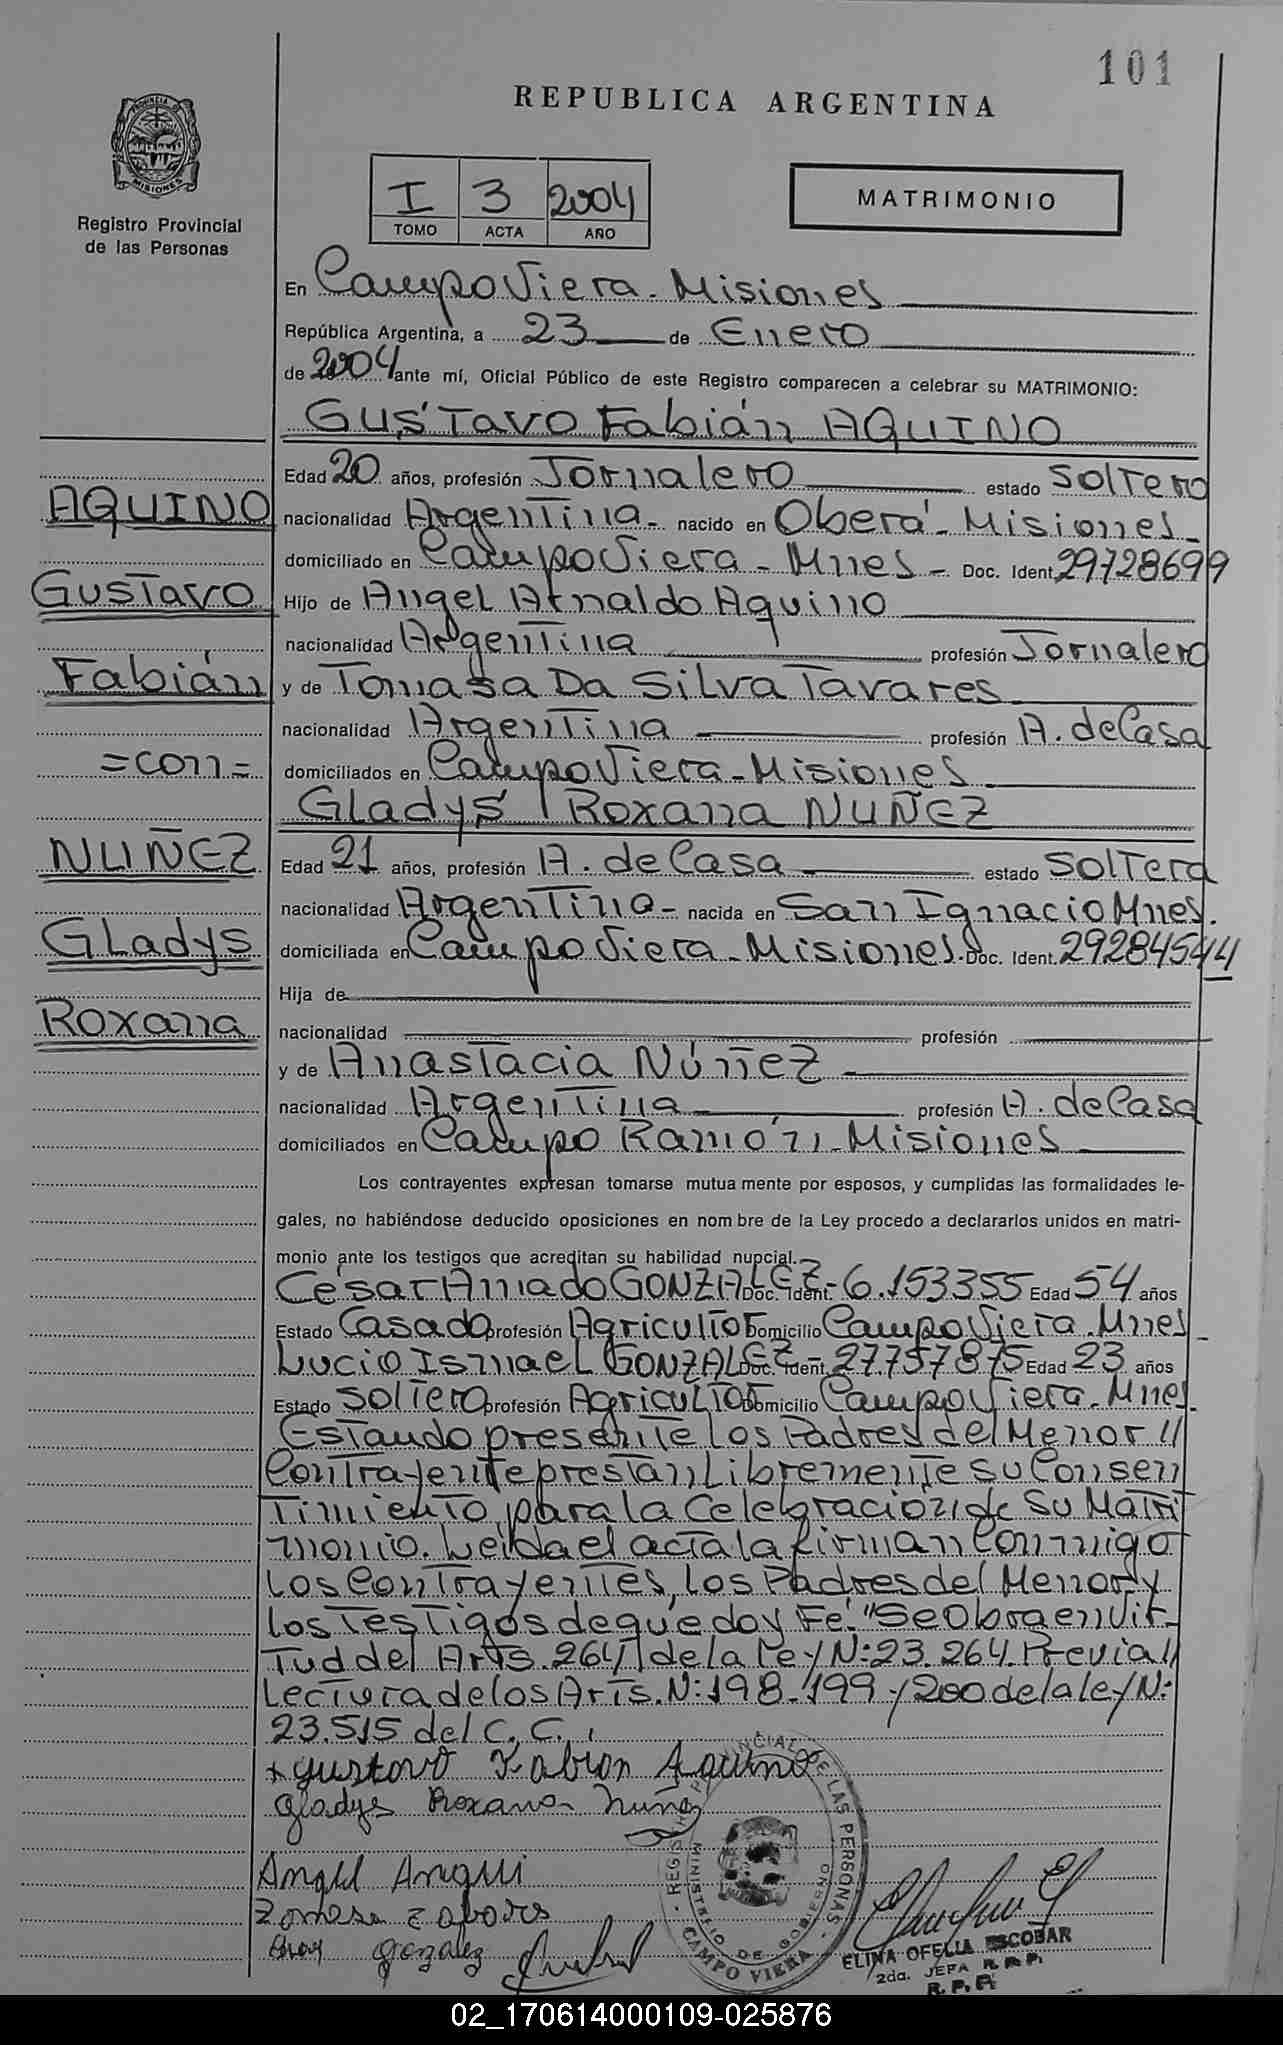 101
REPUBLICA ARGENTINA
MISIONES
Registro Provincial
de las Personas
I 3 2004
TOMO ACTA AÑO
MATRIMONIO
En Campo Viera - Misiones
República Argentina, a 23 de Enero
de 2004 ante mí, Oficial Público de este Registro comparecen a celebrar su MATRIMONIO:
Gustavo Fabián AQUINO
Edad 20 años, profesión Jornalero estado Soltero
AQUINO
nacionalidad Argentina - nacido en Oberá - Misiones -
domiciliado en Campo Viera - Mnes - Doc. Ident. 29728699
Gustavo
Hijo de Angel Arnaldo Aquino
nacionalidad Argentina profesión Jornalero
Fabián
y de Tomasa Da Silva Tavares
nacionalidad Argentina profesión A. de Casa
=con=
domiciliados en Campo Viera - Misiones
Gladys Roxana NUÑEZ
NUÑEZ
Edad 21 años, profesión A. de Casa estado Soltera
nacionalidad Argentina - nacida en San Ignacio Mnes.
Gladys
domiciliada en Campo Viera - Misiones. Doc. Ident. 29284544
Hija de
Roxana
nacionalidad profesión
y de Anastacia Núñez
nacionalidad Argentina profesión A. de Casa
domiciliados en Campo Ramón - Misiones
Los contrayentes expresan tomarse mutua mente por esposos, y cumplidas las formalidades le-
gales, no habiéndose deducido oposiciones en nom bre de la Ley procedo a declararlos unidos en matri-
monio ante los testigos que acreditan su habilidad nupcial.
César Amado GONZALEZ - Doc. Ident. 6.153355 Edad 54 años
Estado Casado profesión Agricultor Domicilio Campo Viera - Mnes -
Lucio Ismael GONZALEZ - Doc. Ident. 27757875 Edad 23 años
Estado Soltero profesión Agricultor Domicilio Campo Viera - Mnes.
Estando presente los Padres del Menor //
Contrayente prestan Libremente su Consen
timiento para la Celebración de Su Matri
monio. Leída el acta la firman Conmigo
los Contrayentes, los Padres del Menor y
los Testigos de que doy Fe. "Se Obra en Vir-
tud del Arts. 264 de la Ley N: 23.264. Previa //
Lectura de los Arts. N: 198 - 199 y 200 de la ley N:
23.515 del C. C.
+ gustavo Fabian Aquino
Gladys Roxana Nuñez
REGISTRO PROVINCIAL DE LAS PERSONAS
MINISTERIO DE GOBIERNO
CAMPO VIERA
Angel
Tomasa
gozalez
ELINA OFELIA ESCOBAR
2da. JEFA R.P.P.
R.P.P.
02_170614000109-025876